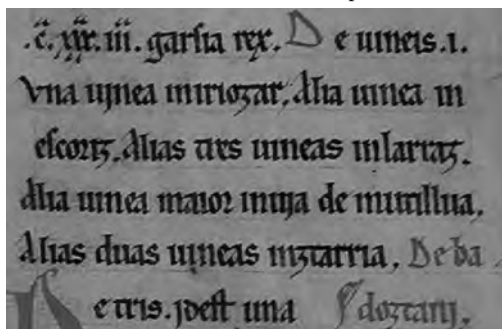 .c. xxx. iii. garsia rex. De uineis .i.
Vna uinea in iriozar, Alia uinea in
escoriz, Alias tres uineas in larraz,
Alia uinea maior in uia de mutillua,
Alias duas uineas in ztarria, De ba
e tris. idest una doztarij,